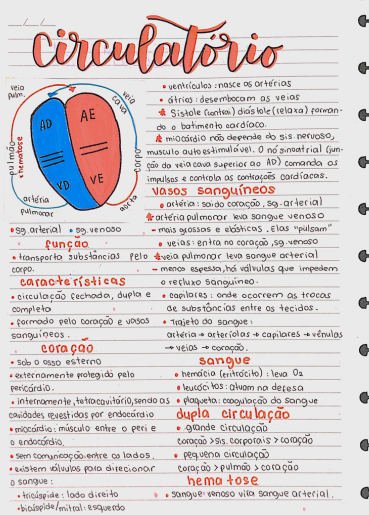 circulatório
veia pulm.
veia cava
AD
AE
VD
VE
pulmão
hematose
corpo
artéria pulmonar
aorta
sg. arterial • sg. venoso
função
• transporta substâncias pelo corpo.
características
• circulação fechada, dupla e completa
• formado pelo coração e vasos sanguíneos.
coração
• sob o osso esterno
• externamente protegido pelo pericárdio.
• internamente, tetracavitário, sendo as cavidades revestidas por endocárdio
• miocárdio: músculo entre o peri e o endocárdio.
• sem comunicação entre os lados.
• existem válvulas para direcionar o sangue:
• tricúspide: lado direito
• bicúspide/mitral: esquerdo
• ventrículos: nasce as artérias
• átrios: desembocam as veias
Sístole (contrai) diástole (relaxa) forman-
do o batimento cardíaco.
miocárdio não depende do sis nervoso,
musculo autoestimulável. O nó sinoatrial (jun-
ção da veia cava superior ao AD) comanda os
impulsos e controla as contrações cardíacas.
vasos sanguíneos
• artéria: sai do coração, sg. arterial
artéria pulmonar leva sangue venoso
– mais grossas e elásticas. Elas "pulsam"
• veias: entra no coração, sg. venoso
veia pulmonar leva sangue arterial
– menos espessa, há válvulas que impedem
o refluxo sanguíneo.
• capilares: onde ocorrem as trocas
de substâncias entre os tecidos.
• Trajeto do sangue:
artéria → arteríolas → capilares → vênulas
→ veias → coração.
sangue
• hemácia (eritrócito): leva O2
• leucócitos: atuam na defesa
• plaqueta: coagulação do sangue
dupla circulação
• grande circulação
coração > sis. corporais > coração
• pequena circulação
coração > pulmão > coração
hematose
• sangue venoso vira sangue arterial.